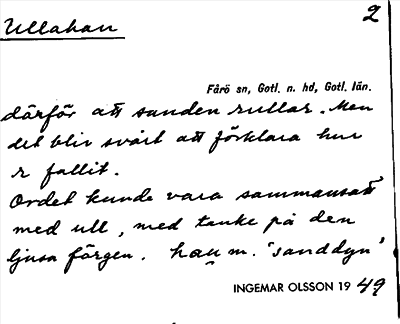 Ullahau
2
Fårö sn, Gotl. n. hd, Gotl. län.
därför att sanden rullar. Men
det blir svårt att förklara hur
r fallit.
Ordet kunde vara sammansatt
med ull, med tanke på den
ljusa färgen. hau m. 'sanddyn'
INGEMAR OLSSON 19 49